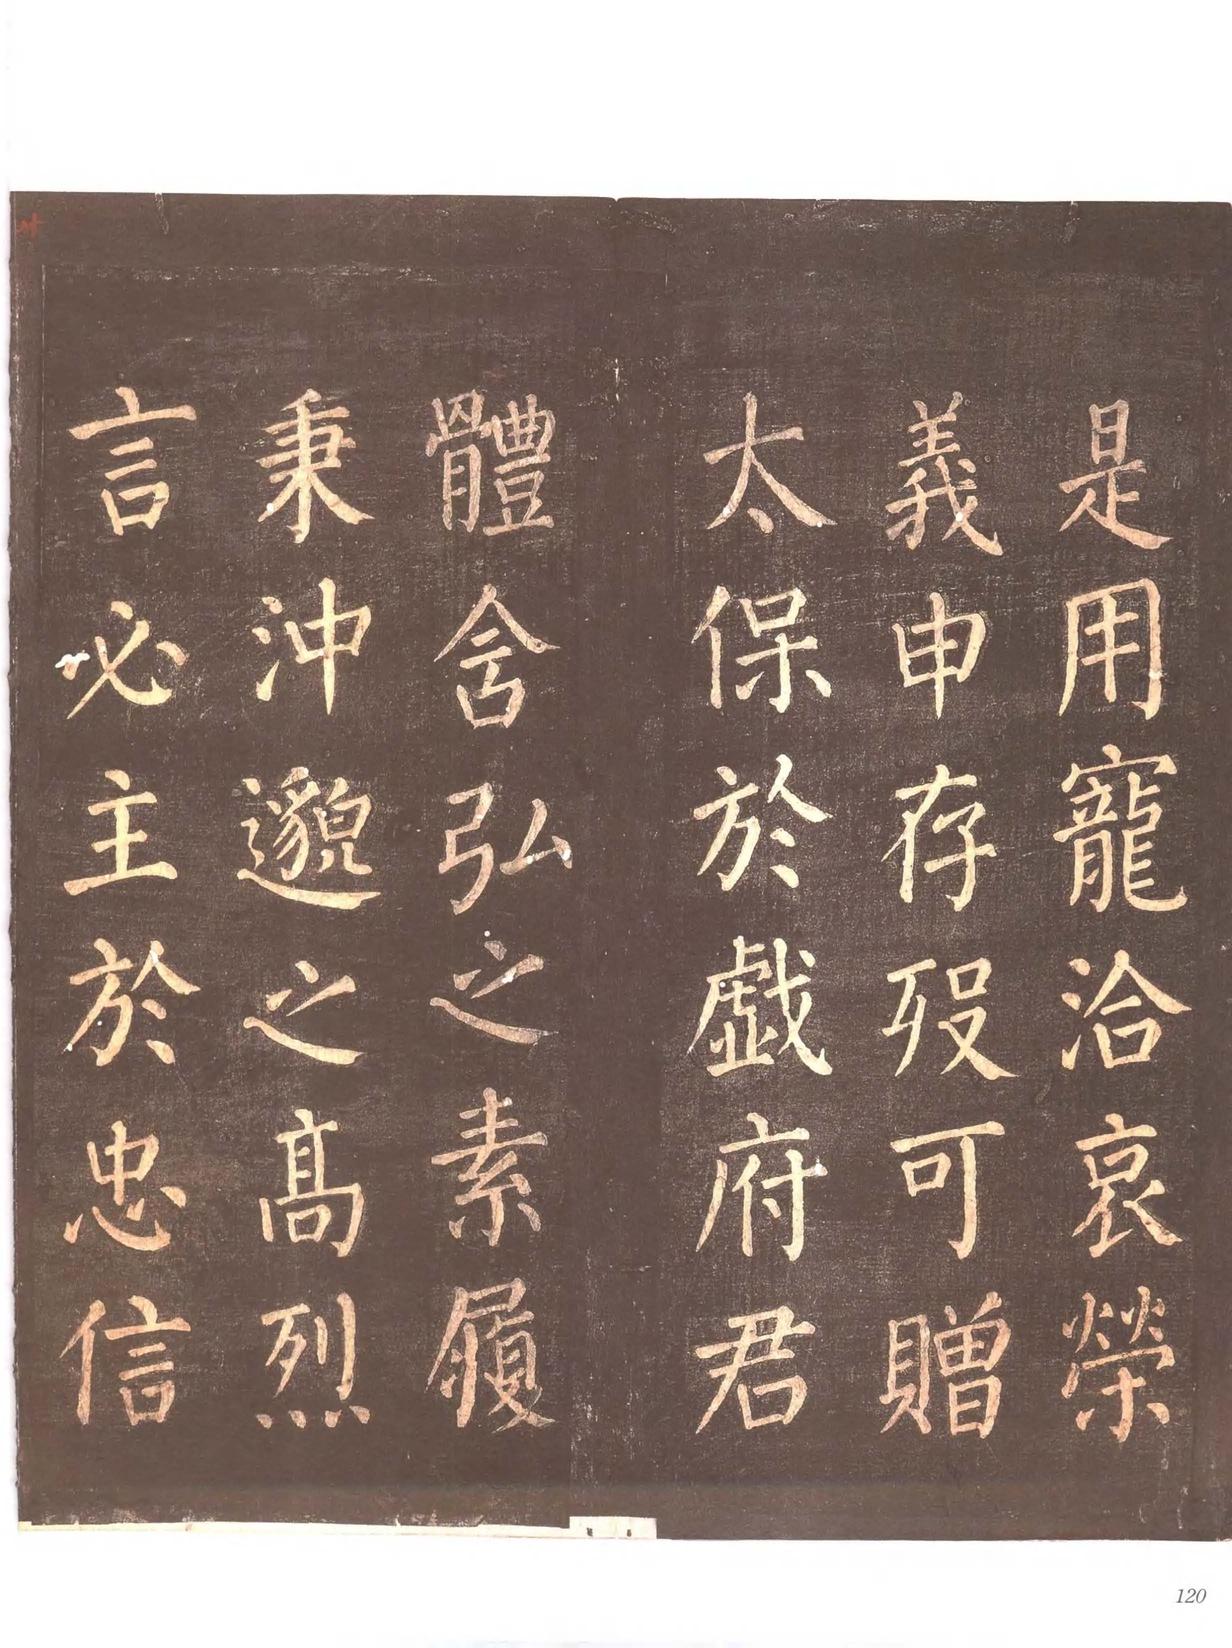 是用寵洽哀榮
義申存歿可贈
太保於戲府君
體含弘之素履
秉沖邈之高烈
言必主於忠信
120